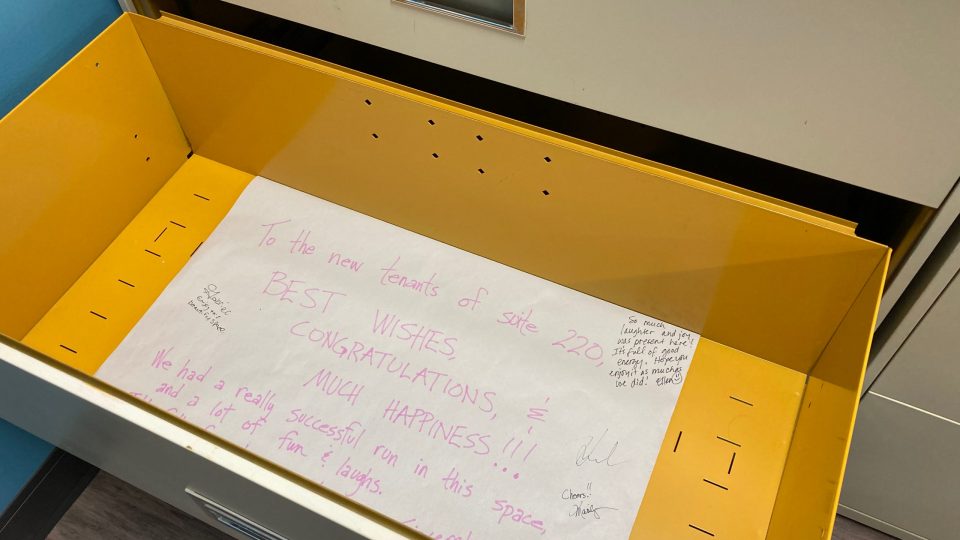 To the new tenants of suite 220,
BEST WISHES,
CONGRATULATIONS, &
MUCH HAPPINESS!!!
We had a really successful run in this space,
and a lot of fun & laughs.
So much
laughter and joy
was present here!
It's full of good
energy. Hope you
enjoy it as much as
we did! Ellen
Cheers!!